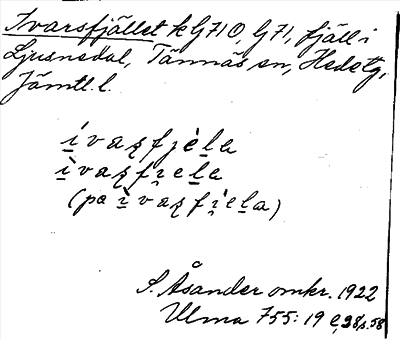 Ivarsfjället k G710, G71, fjäll i
Ljusnedal, Tännäs sn, Hede tg,
Jämtl. l.
ívaʂfjèḷa
ìvaʂfi̯eḷa
(pa ìvaʂfi̯èḷa)
S. Åsander omkr. 1922
Ulma 755: 19 e, 28, s. 58